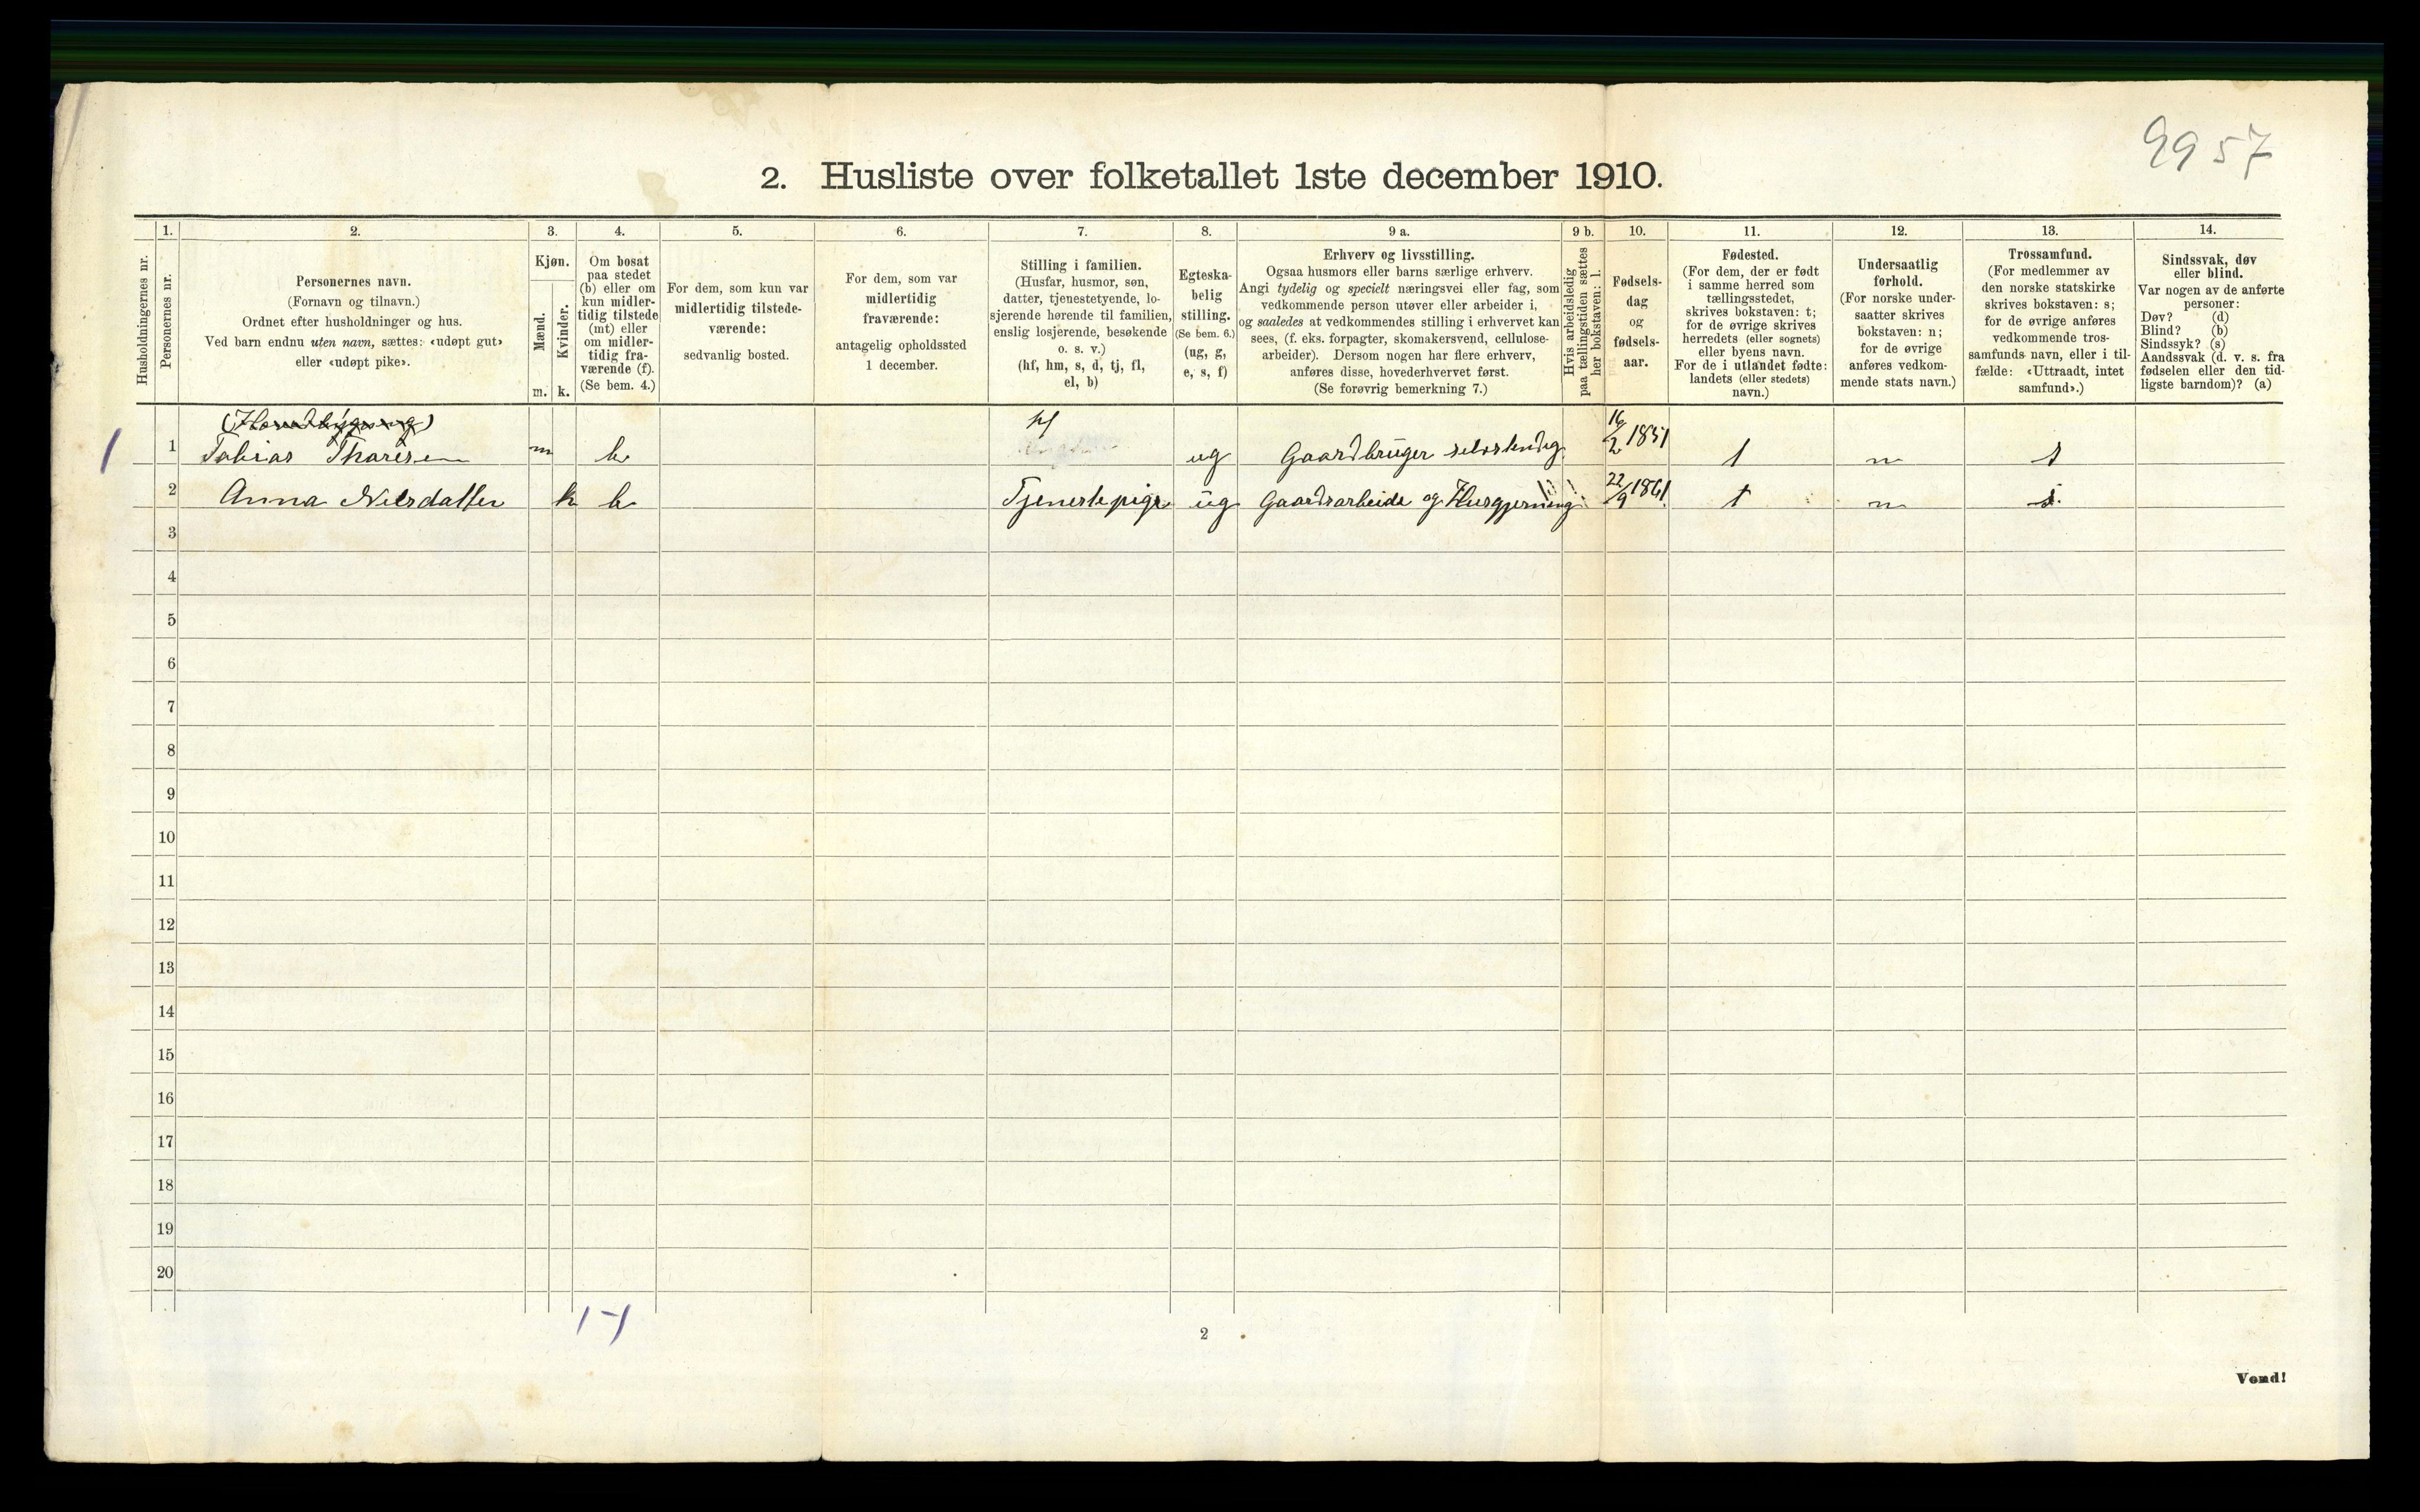 9957
2. Husliste over folketallet 1ste december 1910.
Husholdningernes nr.
1.
Personernes nr.
2.
Personernes navn.
(Fornavn og tilnavn.)
Ordnet efter husholdninger og hus.
Ved barn endnu uten navn, sættes: «udøpt gut»
eller «udøpt pike».
3.
Kjøn.
Mænd.
m.
Kvinder.
k.
4.
Om bosat
paa stedet
(b) eller om
kun midler-
tidig tilstede
(mt) eller
om midler-
tidig fra-
værende (f).
(Se bem. 4.)
5.
For dem, som kun var
midlertidig tilstede-
værende:
sedvanlig bosted.
6.
For dem, som var
midlertidig
fraværende:
antagelig opholdssted
1 december.
7.
Stilling i familien.
(Husfar, husmor, søn,
datter, tjenestetyende, lo-
sjerende hørende til familien,
enslig losjerende, besøkende
o. s. v.)
(hf, hm, s, d, tj, fl,
el, b)
8.
Egteska-
belig
stilling.
(Se bem. 6.)
(ug, g,
e, s, f)
9 a.
Erhverv og livsstilling.
Ogsaa husmors eller barns særlige erhverv.
Angi tydelig og specielt næringsvei eller fag, som
vedkommende person utøver eller arbeider i,
og saaledes at vedkommendes stilling i erhvervet kan
sees, (f. eks. forpagter, skomakersvend, cellulose-
arbeider). Dersom nogen har flere erhverv,
anføres disse, hovederhvervet først.
(Se forøvrig bemerkning 7.)
9 b.
Hvis arbeidsledig
paa tællingstiden sættes
her bokstaven: l.
10.
Fødsels-
dag
og
fødsels-
aar.
11.
Fødested.
(For dem, der er født
i samme herred som
tællingsstedet,
skrives bokstaven: t;
for de øvrige skrives
herredets (eller sognets)
eller byens navn.
For de i utlandet fødte:
landets (eller stedets)
navn.)
12.
Undersaatlig
forhold.
(For norske under-
saatter skrives
bokstaven: n;
for de øvrige
anføres vedkom-
mende stats navn.)
13.
Trossamfund.
(For medlemmer av
den norske statskirke
skrives bokstaven: s;
for de øvrige anføres
vedkommende tros-
samfunds navn, eller i til-
fælde: «Uttraadt, intet
samfund».)
14.
Sindssvak, døv
eller blind.
Var nogen av de anførte
personer:
Døv? (d)
Blind? (b)
Sindssyk? (s)
Aandssvak (d. v. s. fra
fødselen eller den tid-
ligste barndom)? (a)
(Hovedbygning)
1 1 Tobias Tharesen m b hf ug Gaardbruger selvstendig 16/2 1851 t n s
2 Anna Nilsdatter k b Tjenestepige ug Gaardsarbeide og Husgjerning 22/9 1861 t n s.
3
4
5
6
7
8
9
10
11
12
13
14
15
16
17
18
19
20
1-1
2
Vend!